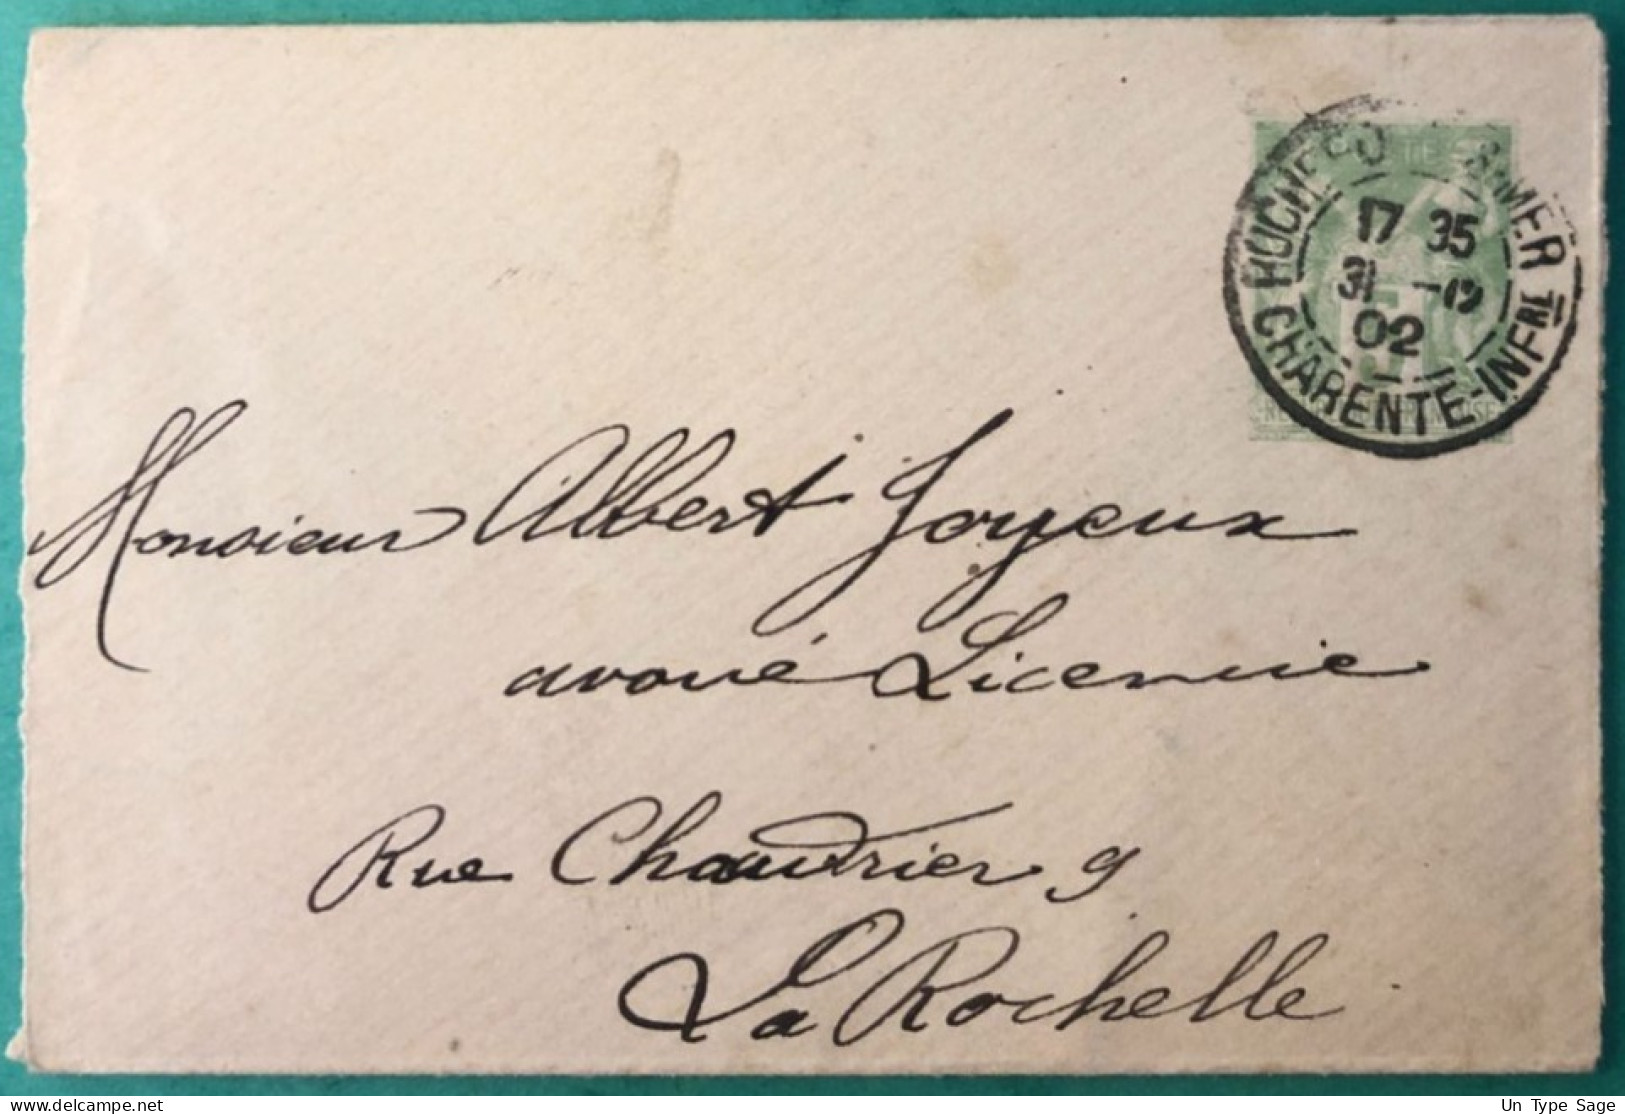 ROCHEFORT S. MER
17 35
31 -12
02
CHARENTE-INFRE
5
Monsieur Albert Joyeux
avoué Licencié
Rue Chaudrier 9
La Rochelle
delcampe.net
Un Type Sage